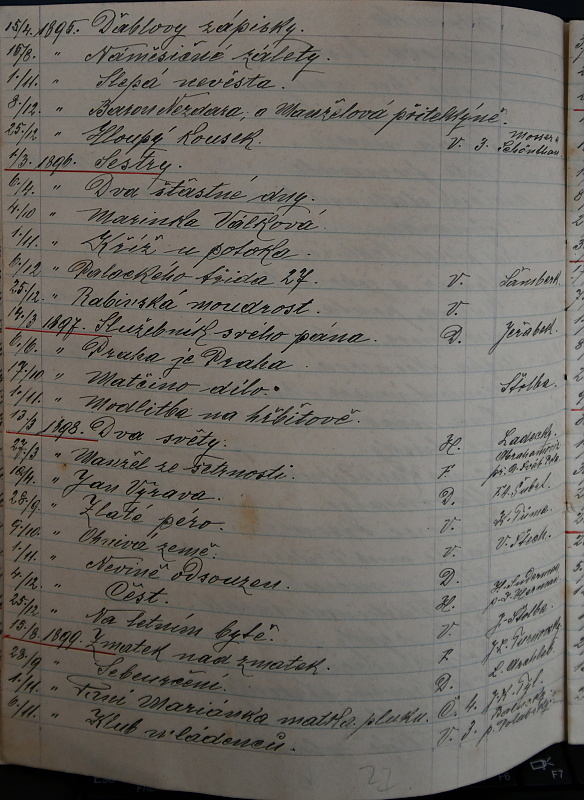 15/4. 1895. Ďáblovy zápisky.
15/8. " Náměsičné zálety.
1./11. " Slepá nevěsta.
8./12. " Baron Nezdara, a Manželová přítelkyně.
25./12 " Hloupý kousek. V. 3. Moser a Schönthan.
1/3. 1896. Sestry.
6./4. " Dva šťastné dny.
4./10 " Marinka Válková.
1./11. " Kříž u potoka.
6./12 " Palackého třída 27. V. Šamberk.
25./12. " Rabínská moudrost. V.
14./3 1897. Služebník svého pána. D. Jeřábek.
6./6. " Praha je Praha.
17./10 " Matčino dílo. Štolba.
1./11. " Modlitba na hřbitově.
13./3 1898. Dva světy. H. Ladecký.
27./3 " Manžel ze šetrnosti. F.
10/4. " Jan Výrava. D. Fr. Šubrt.
28./9. " Zlaté péro. V. K. Tůma.
9./10. " Ohnivá země. V. V. Štech.
1./11 " Nevině odsouzen. D.
4./12. " Čest. H. H. Suderman
25./12. " Na letním bytě. V. J. Štolba.
15./8. 1899. Zmatek nad zmatek. F.
28./9 " Sebeurčení. D.
1./11. " Paní Mariánka matka pluku. Č. 4. J. K. Tyl.
6./11. " Klub mládenců. V. 3.
27
F6 F7